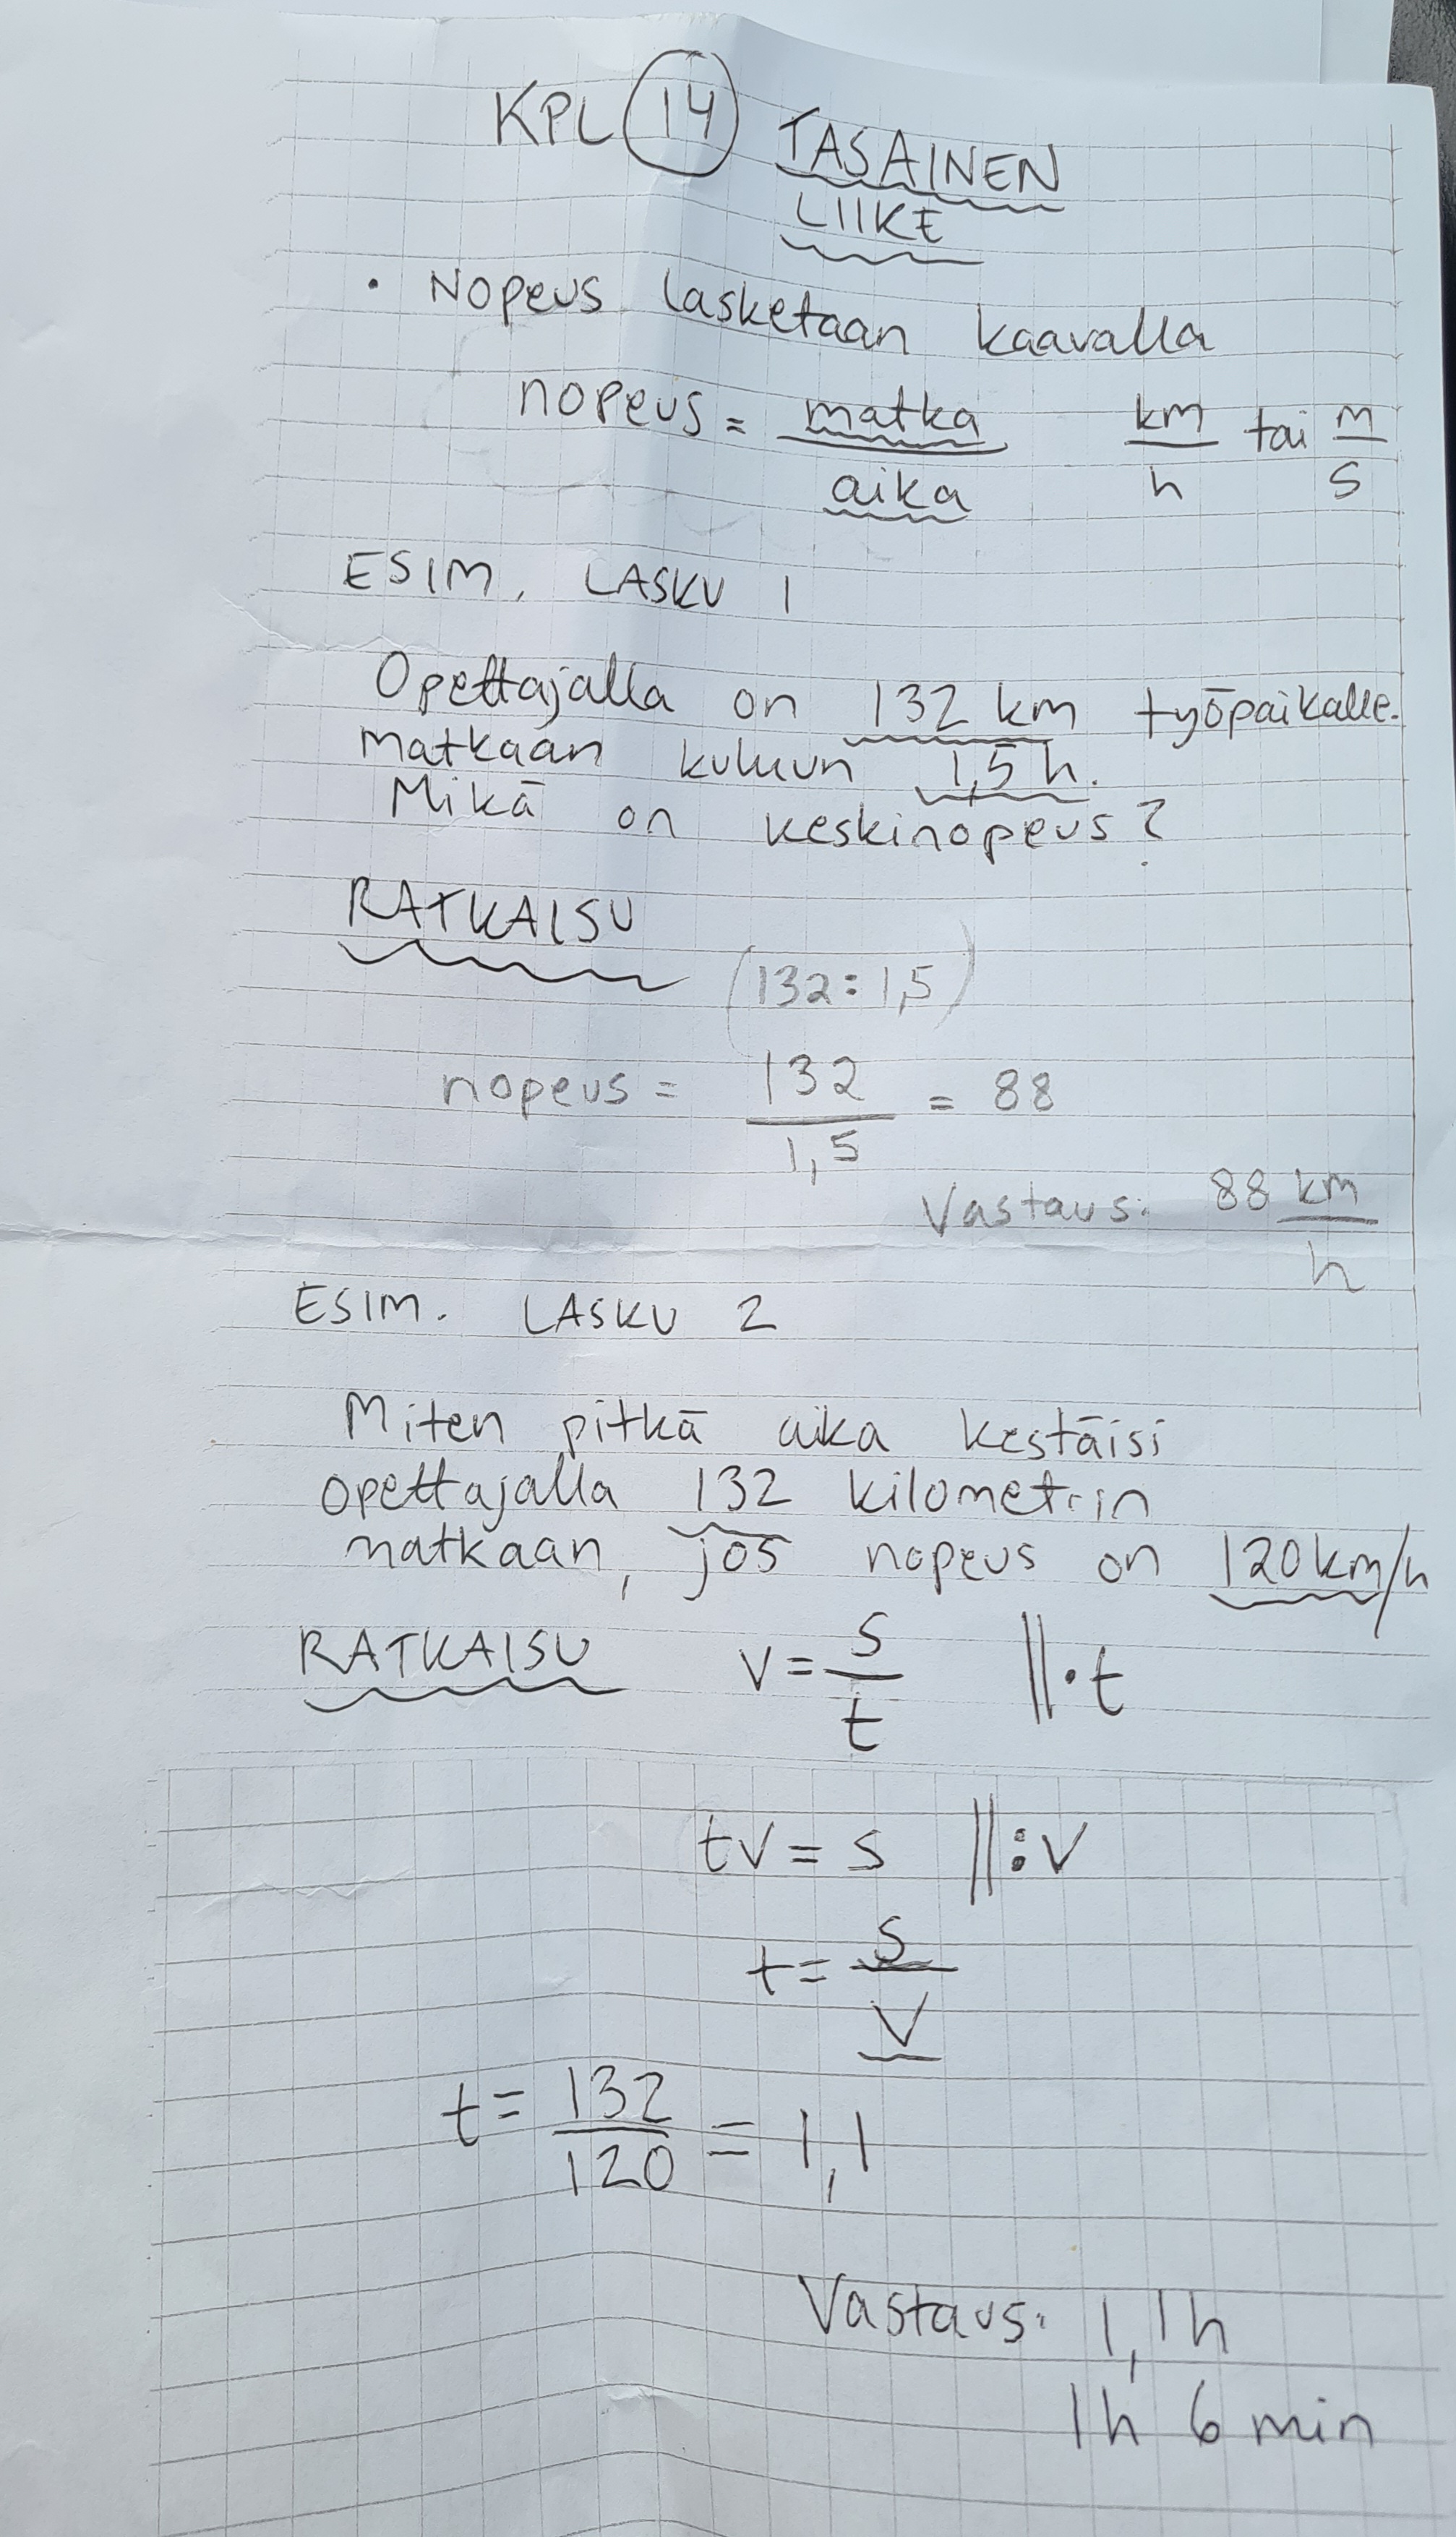 KPL 14 TASAINEN
LIIKE
• Nopeus lasketaan kaavalla
nopeus = matka/aika km/h tai m/s
ESIM. LASKU 1
Opettajalla on 132 km työpaikalle.
matkaan kuluun 1,5 h.
Mikä on keskinopeus?
RATKAISU
(132:1,5)
nopeus = 132/1,5 = 88
Vastaus: 88 km/h
ESIM. LASKU 2
Miten pitkä aika kestäisi
opettajalla 132 kilometrin
matkaan, jos nopeus on 120 km/h
RATKAISU v = s/t ||·t
tv = s ||:v
t = s/v
t = 132/120 = 1,1
Vastaus: 1,1h
1h 6 min